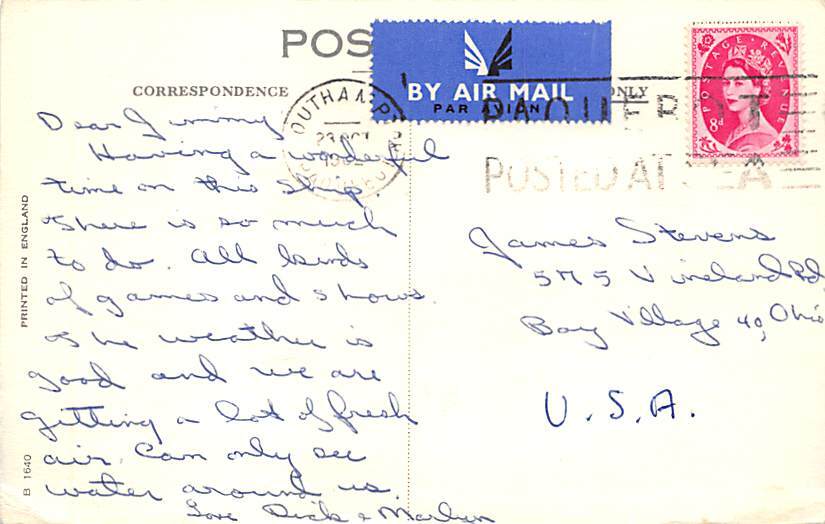 POS
CORRESPONDENCE
ONLY
BY AIR MAIL
PAR AVION
POSTAGE REVENUE
8d
SOUTHAMPTON
23 OCT
PAQUEBOT
POSTED AT SEA
Dear Jimmy
Having a wonderful
time on this ship.
There is so much
to do. All kinds
of games and shows.
The weather is
good and we are
getting a lot of fresh
air. Can only see
water around us.
Love Dick &
James Stevens
Vineland Rd
Bay Village 40, Ohio
U.S.A.
PRINTED IN ENGLAND
B 1640